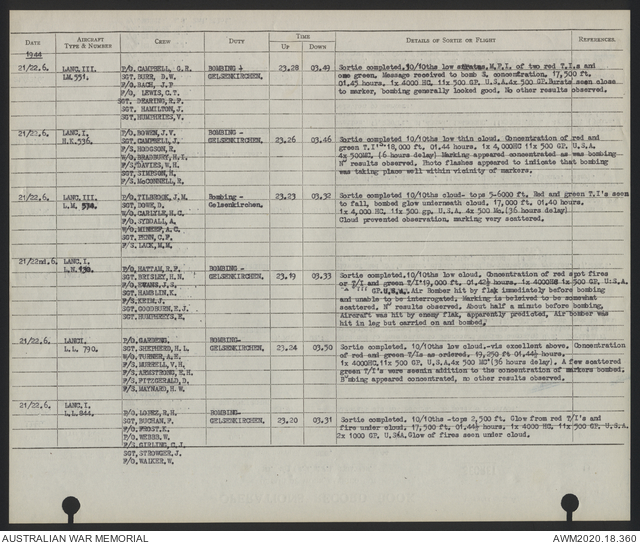 DATE
AIRCRAFT TYPE & NUMBER
CREW
DUTY
TIME
UP
DOWN
DETAILS OF SORTIE OR FLIGHT
REFERENCES.
1944
21/22.6. LANC.III. P/O. CAMPBELL, G.R. BOMBING - 23.28 03.49 Sortie completed. 10/10ths low stratus. M.P.I. of two red T.I.s and
LM.551. SGT. BURR, D.W. GELSENKIRCHEN. one green. Message received to bomb S. concentration. 17,500 ft.
F/O. BACH, J.F. 01.45 hours. 1x 4000 HC. 11x 500 GP. U.S.A. 4x 500 GP. Bursts seen close
F/O. LEWIS, C.T. to marker, bombing generally looked good. No other results observed.
SGT. DEARING, R.F.
SGT. HAMILTON, J.
SGT. HUMPHRIES, V.
21/22.6. LANC.I. P/O. BOWEN, J.V. BOMBING - 23.26 03.46 Sortie completed. 10/10ths low thin cloud. Concentration of red and
H.K.536. SGT. CAMPBELL, J. GELSENKIRCHEN. green T.I's 18,000 ft. 01.44 hours. 1x 4,000HC 11x 500 GP. U.S.A.
F/S. HODGSON, R. 4x 500MC. (6 hours delay) Marking appeared concentrated as was bombing
W/O. BRADBURY, H.I. No results observed. Photo flashes appeared to indicate that bombing
F/S. DAVIES, W.H. was taking place well within vicinity of markers.
SGT. SIMPSON, H.
F/S. McCONNELL, R.
21/22.6. LANC.III. P/O. TILBROOK, J.M. Bombing - 23.23 03.32 Sortie completed. 10/10ths cloud- tops 5-6000 ft. Red and green T.I's seen
L.M. 574. SGT. DOWE, D. Gelsenkirchen. to fall, bombed glow underneath cloud. 17,000 ft. 01.40 hours.
W/O. CARLYLE, H.C. 1x 4,000 HC. 11x 500 gp. U.S.A. 4x 500 Mc.(36 hours delay)
F/O. SYDDALL, A. Cloud prevented observation, marking very scattered.
W/O. A.C.
SGT. PENN, C.F.
F/S. LACK, M.M.
21/22nd.6. LANC.I. P/O. HATTAM, R.F. BOMBING - 23.19 03.33 Sortie completed. 10/10ths low cloud. Concentration of red spot fires
L.N.130. SGT. BRISLEY, H.N. GELSENKIRCHEN. or T/I and green T/I's 19,000 ft. 01.42½ hours. 1x 4000HC 1x 500 GP. U.S.A.
F/O. EVANS, J.S. GP. U.S.A. Air Bomber hit by flak immediately before bombing
SGT. HAMBLIN, K. and unable to be interrogated. Marking is beleived to be somewhat
F/S. KEIM, J. scattered. No results observed. About half a minute before bombing,
SGT. GOODBURN, E.J. Aircraft was hit by enemy flak, apparently predicted. Air bomber was
SGT. HUMPHREYS, E. hit in leg but carried on and bombed.
21/22.6. LANC.I. P/O. GARDENG. BOMBING - 23.24 03.50 Sortie completed. 10/10ths low cloud.-vis excellent above. Concentration
L.L. 790. SGT. SHEPHERD, H.L. GELSENKIRCHEN. of red and green T/Is as ordered. 19,250 ft. 01.44½ hours.
W/O. TURNER, A.H. 1x 4000HC. 11x 500 GP. U.S.A. 4x 500 MC (36 hours delay). A few scattered
F/S. MURRELL, V.H. green T/I's were seen in addition to the concentration of markers bombed.
F/S. ARMSTRONG, E.H. Bombing appeared concentrated, no other results observed.
F/S. FITZGERALD, D.
F/S. MAYNARD, H.W.
21/22.6. LANC.I. P/O. LOPEZ, R.H. BOMBING- 23.20 03.31 Sortie completed. 10/10ths -tops 2,500 ft. Glow from red T/I's and
L.L.844. SGT. BUCHAN, F. GELSENKIRCHEN. fire under cloud. 17,500 ft. 01.44½ hours. 1x 4000 HC. 11x 500 GP. U.S.A.
F/O. FROST, K. 2x 1000 GP. USAA. Glow of fires seen under cloud.
F/O. WEBBE, W.
F/S. GIRLING, C.J.
SGT. STROWGER, J.
F/O. WALKER, W.
AUSTRALIAN WAR MEMORIAL
AWM2020.18.360